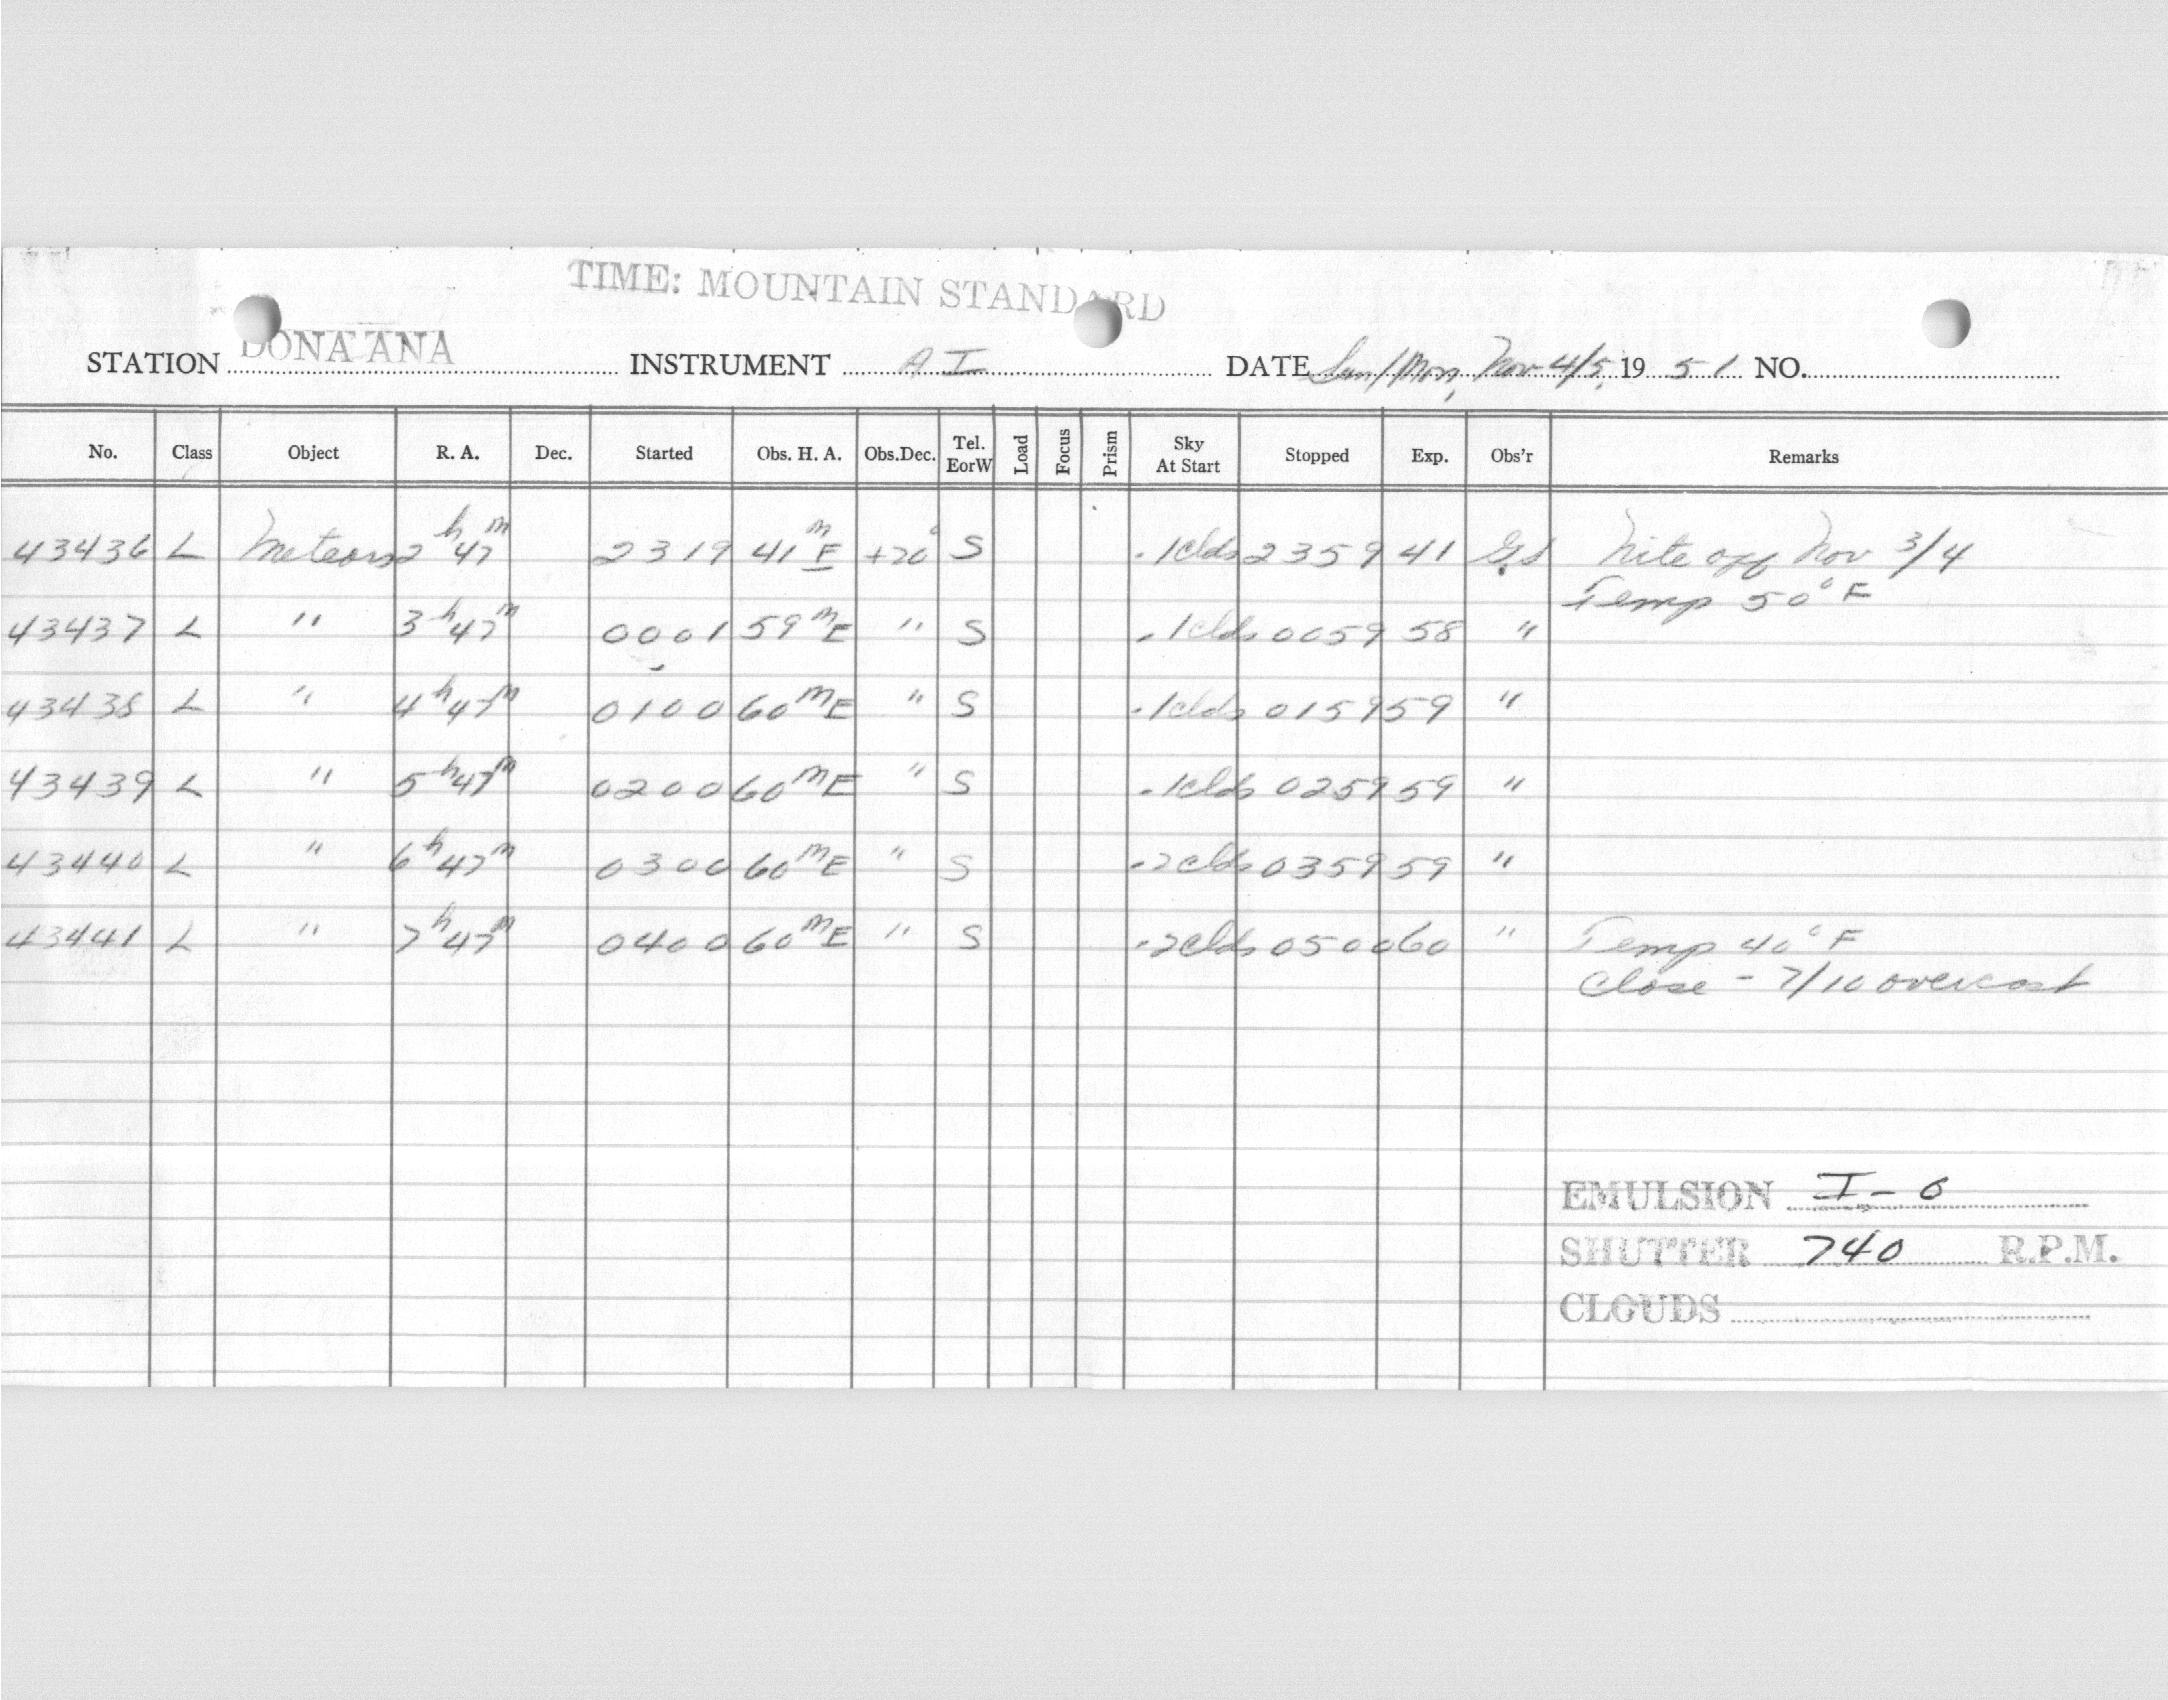 TIME: MOUNTAIN STANDARD
STATION DONA ANA INSTRUMENT A I DATE Sun/Mon, Nov 4/5, 19 51 NO.
No. Class Object R. A. Dec. Started Obs. H. A. Obs.Dec. Tel. EorW Load Focus Prism Sky At Start Stopped Exp. Obs'r Remarks
43436 L Meteors 2h 47m 2319 41m E +20° S .1clds 2359 41 Nite off Nov 3/4
Temp 50°F
43437 L " 3h 47m 0001 59m E " S .1clds 0059 58 "
43438 L " 4h 47m 0100 60m E " S .1clds 0159 59 "
43439 L " 5h 47m 0200 60m E " S .1clds 0259 59 "
43440 L " 6h 47m 0300 60m E " S .2clds 0359 59 "
43441 L " 7h 47m 0400 60m E " S .2clds 0500 60 " Temp 40°F
Close - 7/10 overcast
EMULSION I-0
SHUTTER 740 R.P.M.
CLOUDS